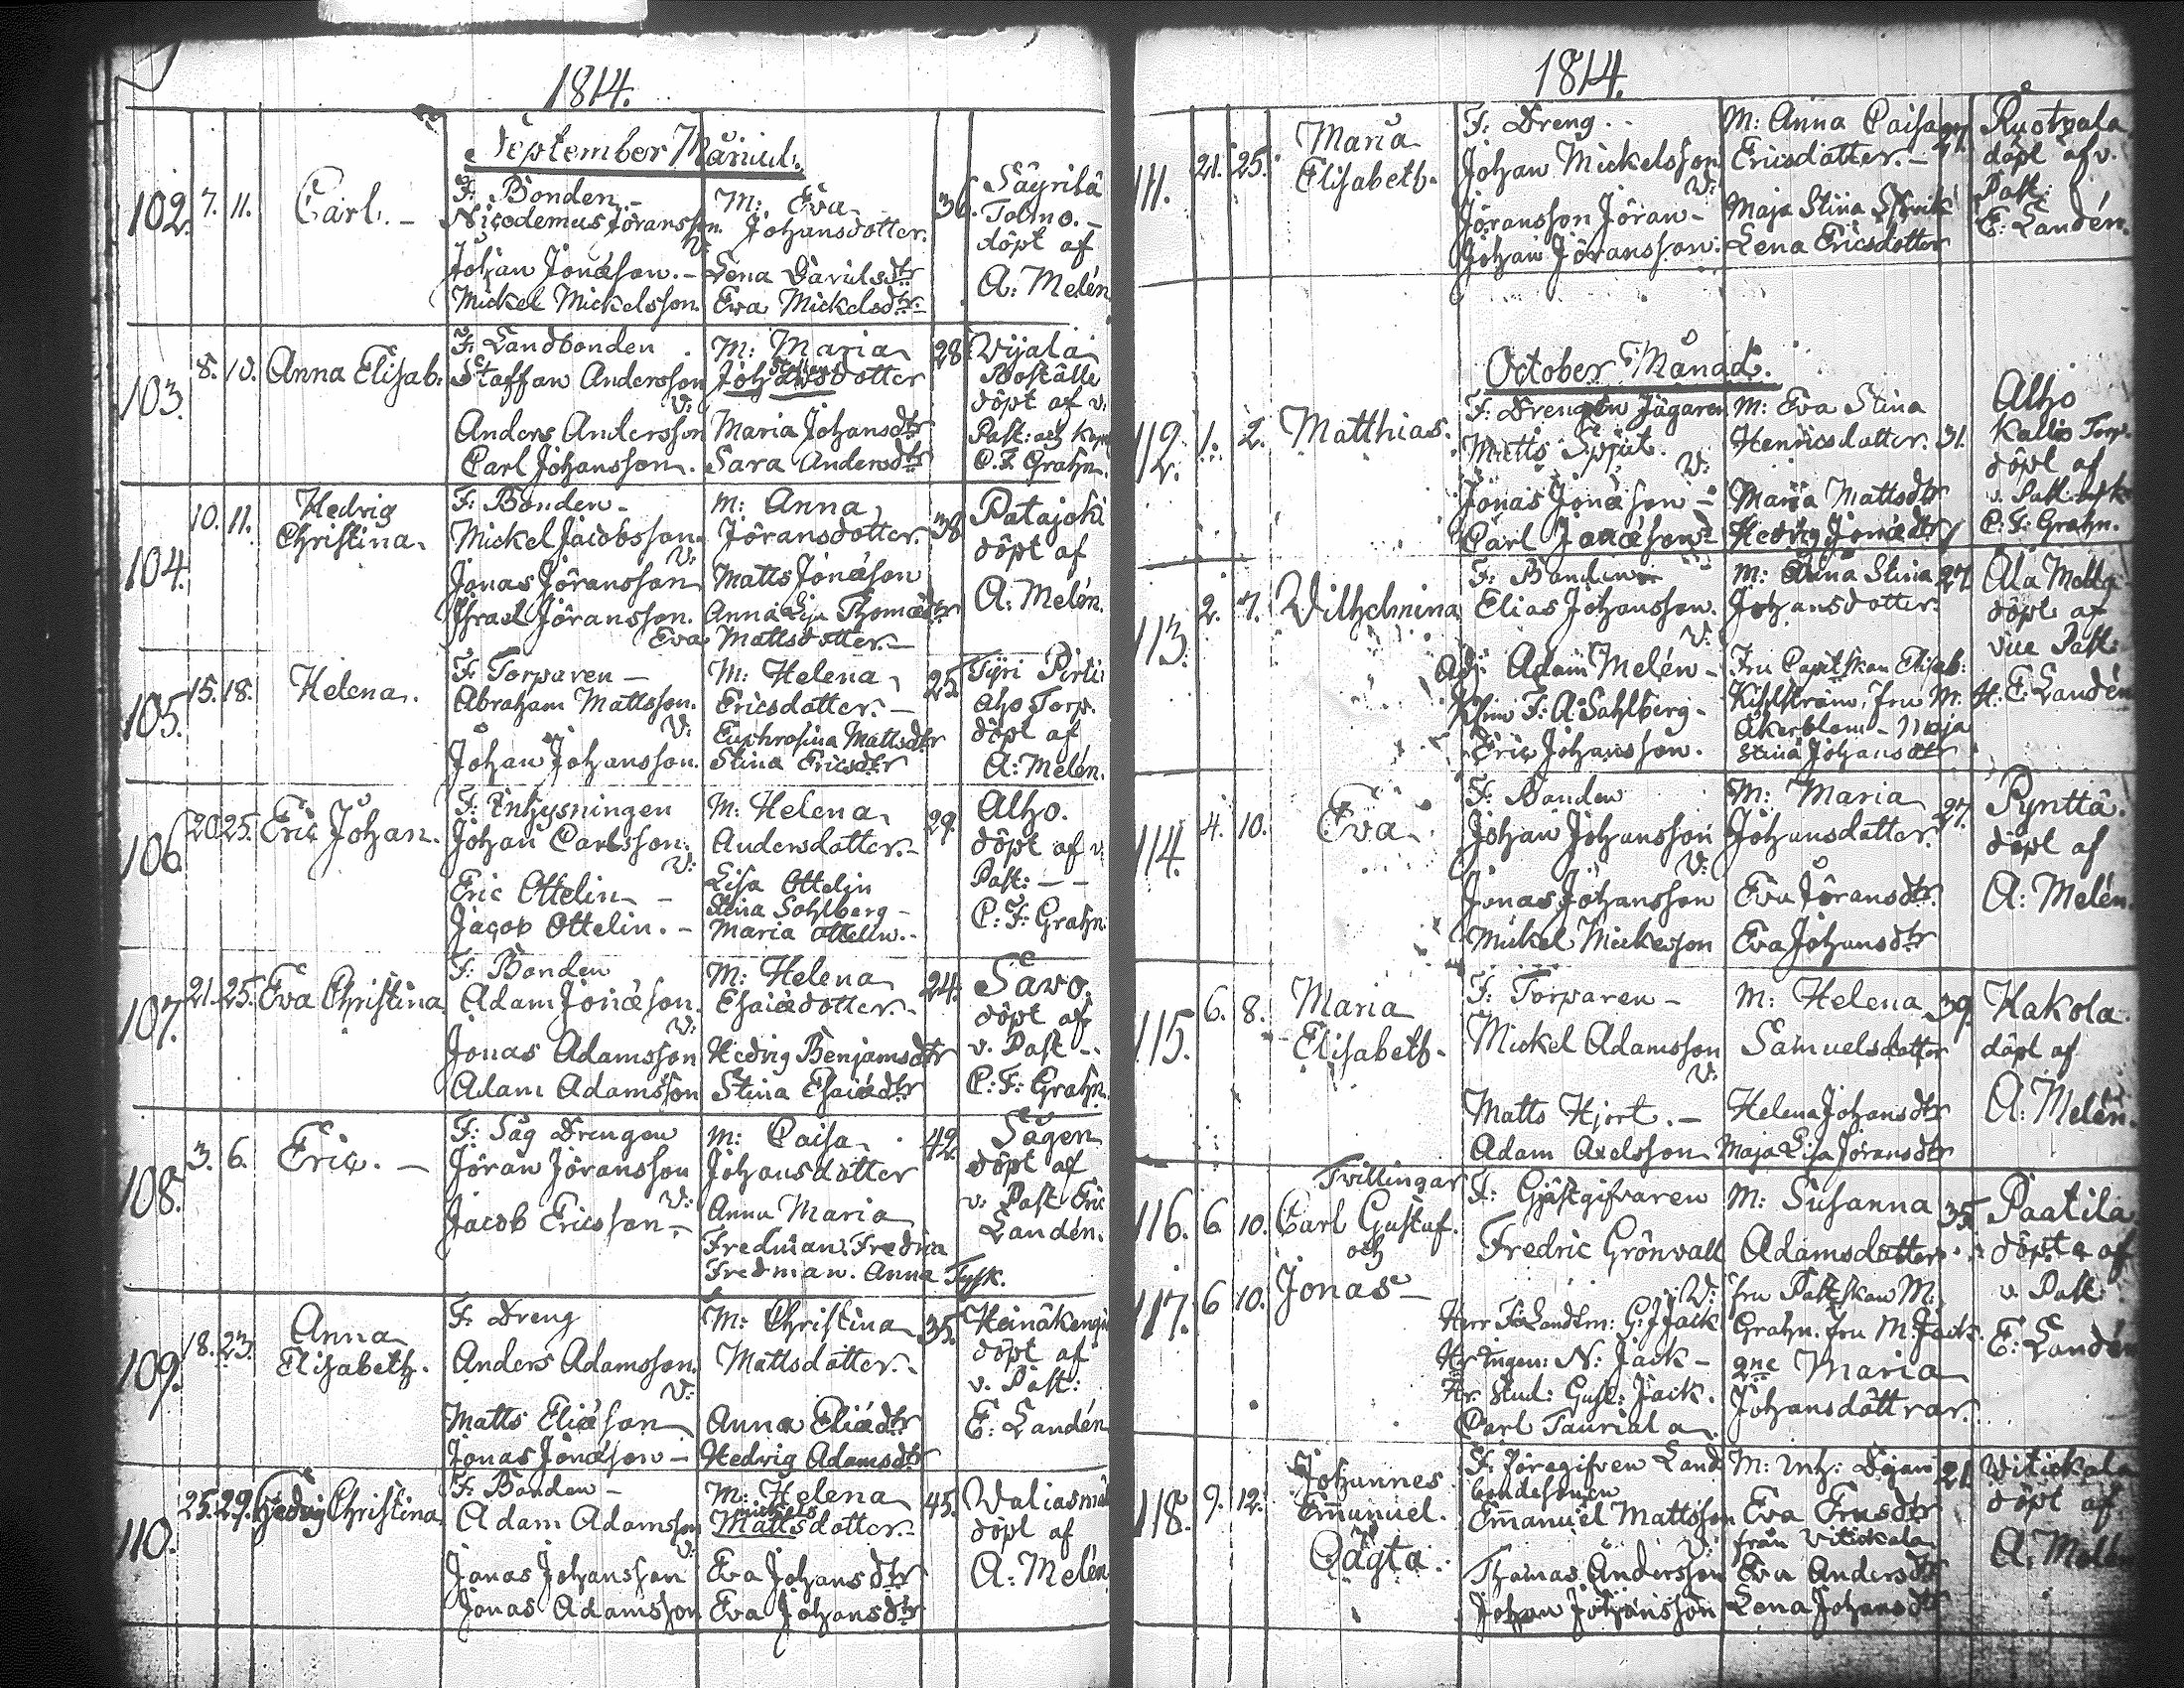 1814.
September Månad.
102. 7. 11. Carl. – F: Bonden – M: Eva 36. Säyrilä
Nicodemus Jöransson. Johansdotter. Tolmo. –
V: döpt af
Johan Jonæson. – Lena Davidsdtr A: Melén
Mickel Mickelsson. Eva Mickelsdtr
103. 8. 10. Anna Elisab. F: Landbonden M: Maria 28 Wijala
Staffan Andersson Johansdotter Boställe
V: döpt af v:
Anders Andersson Maria Johansdtr Past: och
Carl Johansson. Sara Andersdtr C. F. Grahn.
104. 10. 11. Hedvig F: Bonden – M: Anna 38 Patajoki
Christina. Mickel Jacobsson. Jöransdotter. döpt af
V:
Jonas Jöransson Matts Jonæson A: Melén.
Israel Jöransson. Anna Lisa Thomædtr
Eva Mattsdotter. –
105. 15. 18. Helena. F: Torparen – M: Helena 25. Tyri Pirtti
Abraham Mattsson. Ericsdotter. – Aho Torp.
V: Euphrosina Mattsdtr döpt af
Johan Johansson. Stina Ericsdtr A: Melén.
106. 20. 25. Eric Johan. F: Inhysningen M: Helena 29. Alho.
Johan Carlsson. Andersdotter. – döpt af v:
V: Lisa Ottelin Past: – –
Eric Ottelin – Stina Sohlberg – C: F: Grahn.
Jacob Ottelin. – Maria Ottelin. –
107. 21. 25. Eva Christina F: Bonden M: Helena 24. Savo.
Adam Jonæson. Esaiædotter. – döpt af
V: v. Past –
Jonas Adamsson Hedvig Benjamsdtr C: F: Grahn.
Adam Adamsson Stina Esaiædtr
108. 3. 6. Eric. – F: Såg Drengen M: Caisa 42. Sågen
Jöran Jöransson Johansdotter döpt af
V: Anna Maria v: Past Eric
Jacob Ericsson – Fredman. Fredrica Landén.
Fredman. Anna Tysk.
109. 18. 23. Anna F: Dreng M: Christina 35. Heinäkangas
Elisabeth. Anders Adamsson. Mattsdotter. – döpt af
V: v. Past:
Matts Eliæson Anna Eliædtr E: Landén
Jonas Jonæson – Hedvig Adamsdtr
110. 25. 29. Hedvig Christina. F: Bonden – M: Helena 45. Waliasmäki
Adam Adamsson Mattsdotter. – döpt af
V:
Jonas Johansson Eva Johansdtr A: Melén
Jonas Adamsson Eva Johansdtr
1814.
111. 21. 25. Maria F: Dreng M: Anna Caisa 27. Ruotzala
Elisabeth. Johan Mickelsson Ericsdotter. – döpt af v.
V: Past:
Jöransson Jöran – Maja Stina E: Landén.
Johan Jöransson. Lena Ericsdotter
October Månad.
112. 1. 2. Matthias. F: Drengen Jägaren M: Eva Stina Alho
Matts Spjut. Henricsdotter. 31. Kallio Torp.
V: döpt af
Jonas Jonæson – Maria Mattsdtr v. Past
Carl Jonæson – Hedvig Jonædtr C: F: Grahn.
113. 2. 7. Wilhelmina F: Bonden M: Anna Stina 27. Ala Mella
Elias Johansson. Johansdotter. döpt af
V: vice Past:
Adj: Adam Melén – Fru Capitskan Elisab: E: Landén
F: A: Sahlberg – Kihlström, Fru M: H:
Eric Johansson. Åkerblom – Maja
Stina Johansdtr
114. 4. 10. Eva F: Bonden M: Maria 27. Pynttä.
Johan Johansson Johansdotter. döpt af
V:
Jonas Johansson Eva Jöransdtr. A: Melén.
Mickel Mickelson Eva Johansdtr
115. 6. 8. Maria F: Torparen – M: Helena 39. Kakola.
Elisabeth – Mickel Adamsson Samuelsdotter döpt af
V:
Matts Hjort. – Helena Johansdtr A: Melén.
Adam Axelsson Maja Lisa Jöransdtr
Tvillingar
116. 6. 10. Carl Gustaf. F: Gjästgifvaren M: Susanna 35. Paatila
och Fredric Grönvall Adamsdotter. döpte af
117. 6 10. Jonas – V: fru Pastskan M: v. Past:
Herr F: Landtm: G: J: Jack Grahn. fru M: Jack. E: Landén
Hr Ingen: N: Jack – 2ne Maria
Hr Stud: Gust: Jack. Johansdöttrar.
Carl Taurial a
118. 9. 12. Johannes F: Föregifven Land M: Inh: Pigan 21 Vitickala
Emanuel. bondesonen döpt af
Emanuel Mattsson Eva
Oägta. V: från Vitickala A: Melén
Thomas Andersson Eva Andersdtr
Johan Johansson Lena Johansdtr